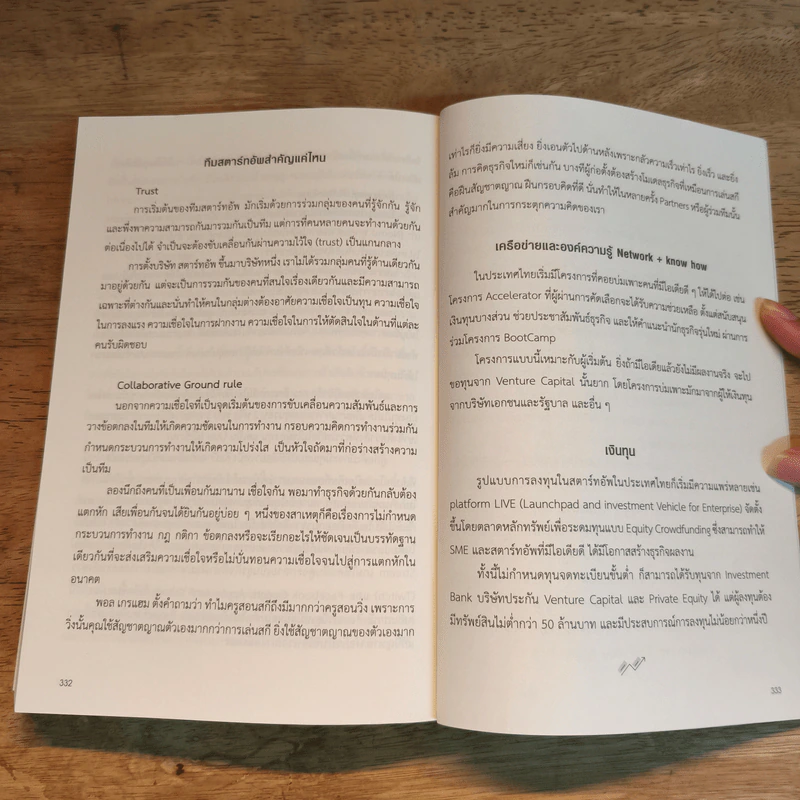 ทีมสตาร์ทอัพสำคัญแค่ไหน
Trust
การเริ่มต้นของทีมสตาร์ทอัพ มักเริ่มด้วยการร่วมกลุ่มของคนที่รู้จักกัน รู้จัก
และพึ่งพาความสามารถกันมารวมกันเป็นทีม แต่การที่คนหลายคนจะทำงานด้วยกัน
ต่อเนื่องไปได้ จำเป็นจะต้องขับเคลื่อนกันผ่านความไว้ใจ (trust) เป็นแกนกลาง
การตั้งบริษัท สตาร์ทอัพ ขึ้นมาบริษัทหนึ่ง เราไม่ได้รวมกลุ่มคนที่รู้ด้านเดียวกัน
มาอยู่ด้วยกัน แต่จะเป็นการรวมกันของคนที่สนใจเรื่องเดียวกันและมีความสามารถ
เฉพาะที่ต่างกันและนั่นทำให้คนในกลุ่มต่างต้องอาศัยความเชื่อใจเป็นทุน ความเชื่อใจ
ในการลงแรง ความเชื่อใจในการฝากงาน ความเชื่อใจในการให้ตัดสินใจในด้านที่แต่ละ
คนรับผิดชอบ
Collaborative Ground rule
นอกจากความเชื่อใจที่เป็นจุดเริ่มต้นของการขับเคลื่อนความสัมพันธ์และการ
วางข้อตกลงในทีมให้เกิดความชัดเจนในการทำงาน กรอบความคิดการทำงานร่วมกัน
กำหนดกระบวนการทำงานให้เกิดความโปร่งใส เป็นหัวใจถัดมาที่ก่อร่างสร้างความ
เป็นทีม
ลองนึกถึงคนที่เป็นเพื่อนกันมานาน เชื่อใจกัน พอมาทำธุรกิจด้วยกันกลับต้อง
แตกหัก เสียเพื่อนกันจนได้ยินกันอยู่บ่อย ๆ หนึ่งของสาเหตุก็คือเรื่องการไม่กำหนด
กระบวนการทำงาน กฎ กติกา ข้อตกลงหรือจะเรียกอะไรให้ชัดเจนเป็นบรรทัดฐาน
เดียวกันที่จะส่งเสริมความเชื่อใจหรือไม่บั่นทอนความเชื่อใจจนไปสู่การแตกหักใน
อนาคต
พอล เกรแฮม ตั้งคำถามว่า ทำไมครูสอนสกีถึงมีมากกว่าครูสอนวิ่ง เพราะการ
วิ่งนั้นคุณใช้สัญชาตญาณตัวเองมากกว่าการเล่นสกี ยิ่งใช้สัญชาตญาณของตัวเองมาก
332
เท่าไรก็ยิ่งมีความเสี่ยง ยิ่งเอนตัวไปด้านหลังเพราะกลัวความเร็วเท่าไร ยิ่งเร็ว และยิ่ง
ล้ม การคิดธุรกิจใหม่ก็เช่นกัน บางทีผู้ก่อตั้งต้องสร้างโมเดลธุรกิจที่เหมือนการเล่นสกี
คือฝืนสัญชาตญาณ ฝืนกรอบคิดที่ดี นั่นทำให้ในหลายครั้ง Partners หรือผู้ร่วมทีมนั้น
สำคัญมากในการกระตุกความคิดของเรา
เครือข่ายและองค์ความรู้ Network + know how
ในประเทศไทยเริ่มมีโครงการที่คอยบ่มเพาะคนที่มีไอเดียดี ๆ ให้ได้ไปต่อ เช่น
โครงการ Accelerator ที่ผู้ผ่านการคัดเลือกจะได้รับความช่วยเหลือ ตั้งแต่สนับสนุน
เงินทุนบางส่วน ช่วยประชาสัมพันธ์ธุรกิจ และให้คำแนะนำนักธุรกิจรุ่นใหม่ ผ่านการ
ร่วมโครงการ BootCamp
โครงการแบบนี้เหมาะกับผู้เริ่มต้น ยิ่งถ้ามีไอเดียแล้วยังไม่มีผลงานจริง จะไป
ขอทุนจาก Venture Capital นั้นยาก โดยโครงการบ่มเพาะมักมาจากผู้ให้เงินทุน
จากบริษัทเอกชนและรัฐบาล และอื่น ๆ
เงินทุน
รูปแบบการลงทุนในสตาร์ทอัพในประเทศไทยก็เริ่มมีความแพร่หลายเช่น
platform LIVE (Launchpad and investment Vehicle for Enterprise) จัดตั้ง
ขึ้นโดยตลาดหลักทรัพย์เพื่อระดมทุนแบบ Equity Crowdfunding ซึ่งสามารถทำให้
SME และสตาร์ทอัพที่มีไอเดียดี ได้มีโอกาสสร้างธุรกิจผลงาน
ทั้งนี้ไม่กำหนดทุนจดทะเบียนขั้นต่ำ ก็สามารถได้รับทุนจาก Investment
Bank บริษัทประกัน Venture Capital และ Private Equity ได้ แต่ผู้ลงทุนต้อง
มีทรัพย์สินไม่ต่ำกว่า 50 ล้านบาท และมีประสบการณ์การลงทุนไม่น้อยกว่าหนึ่งปี
333